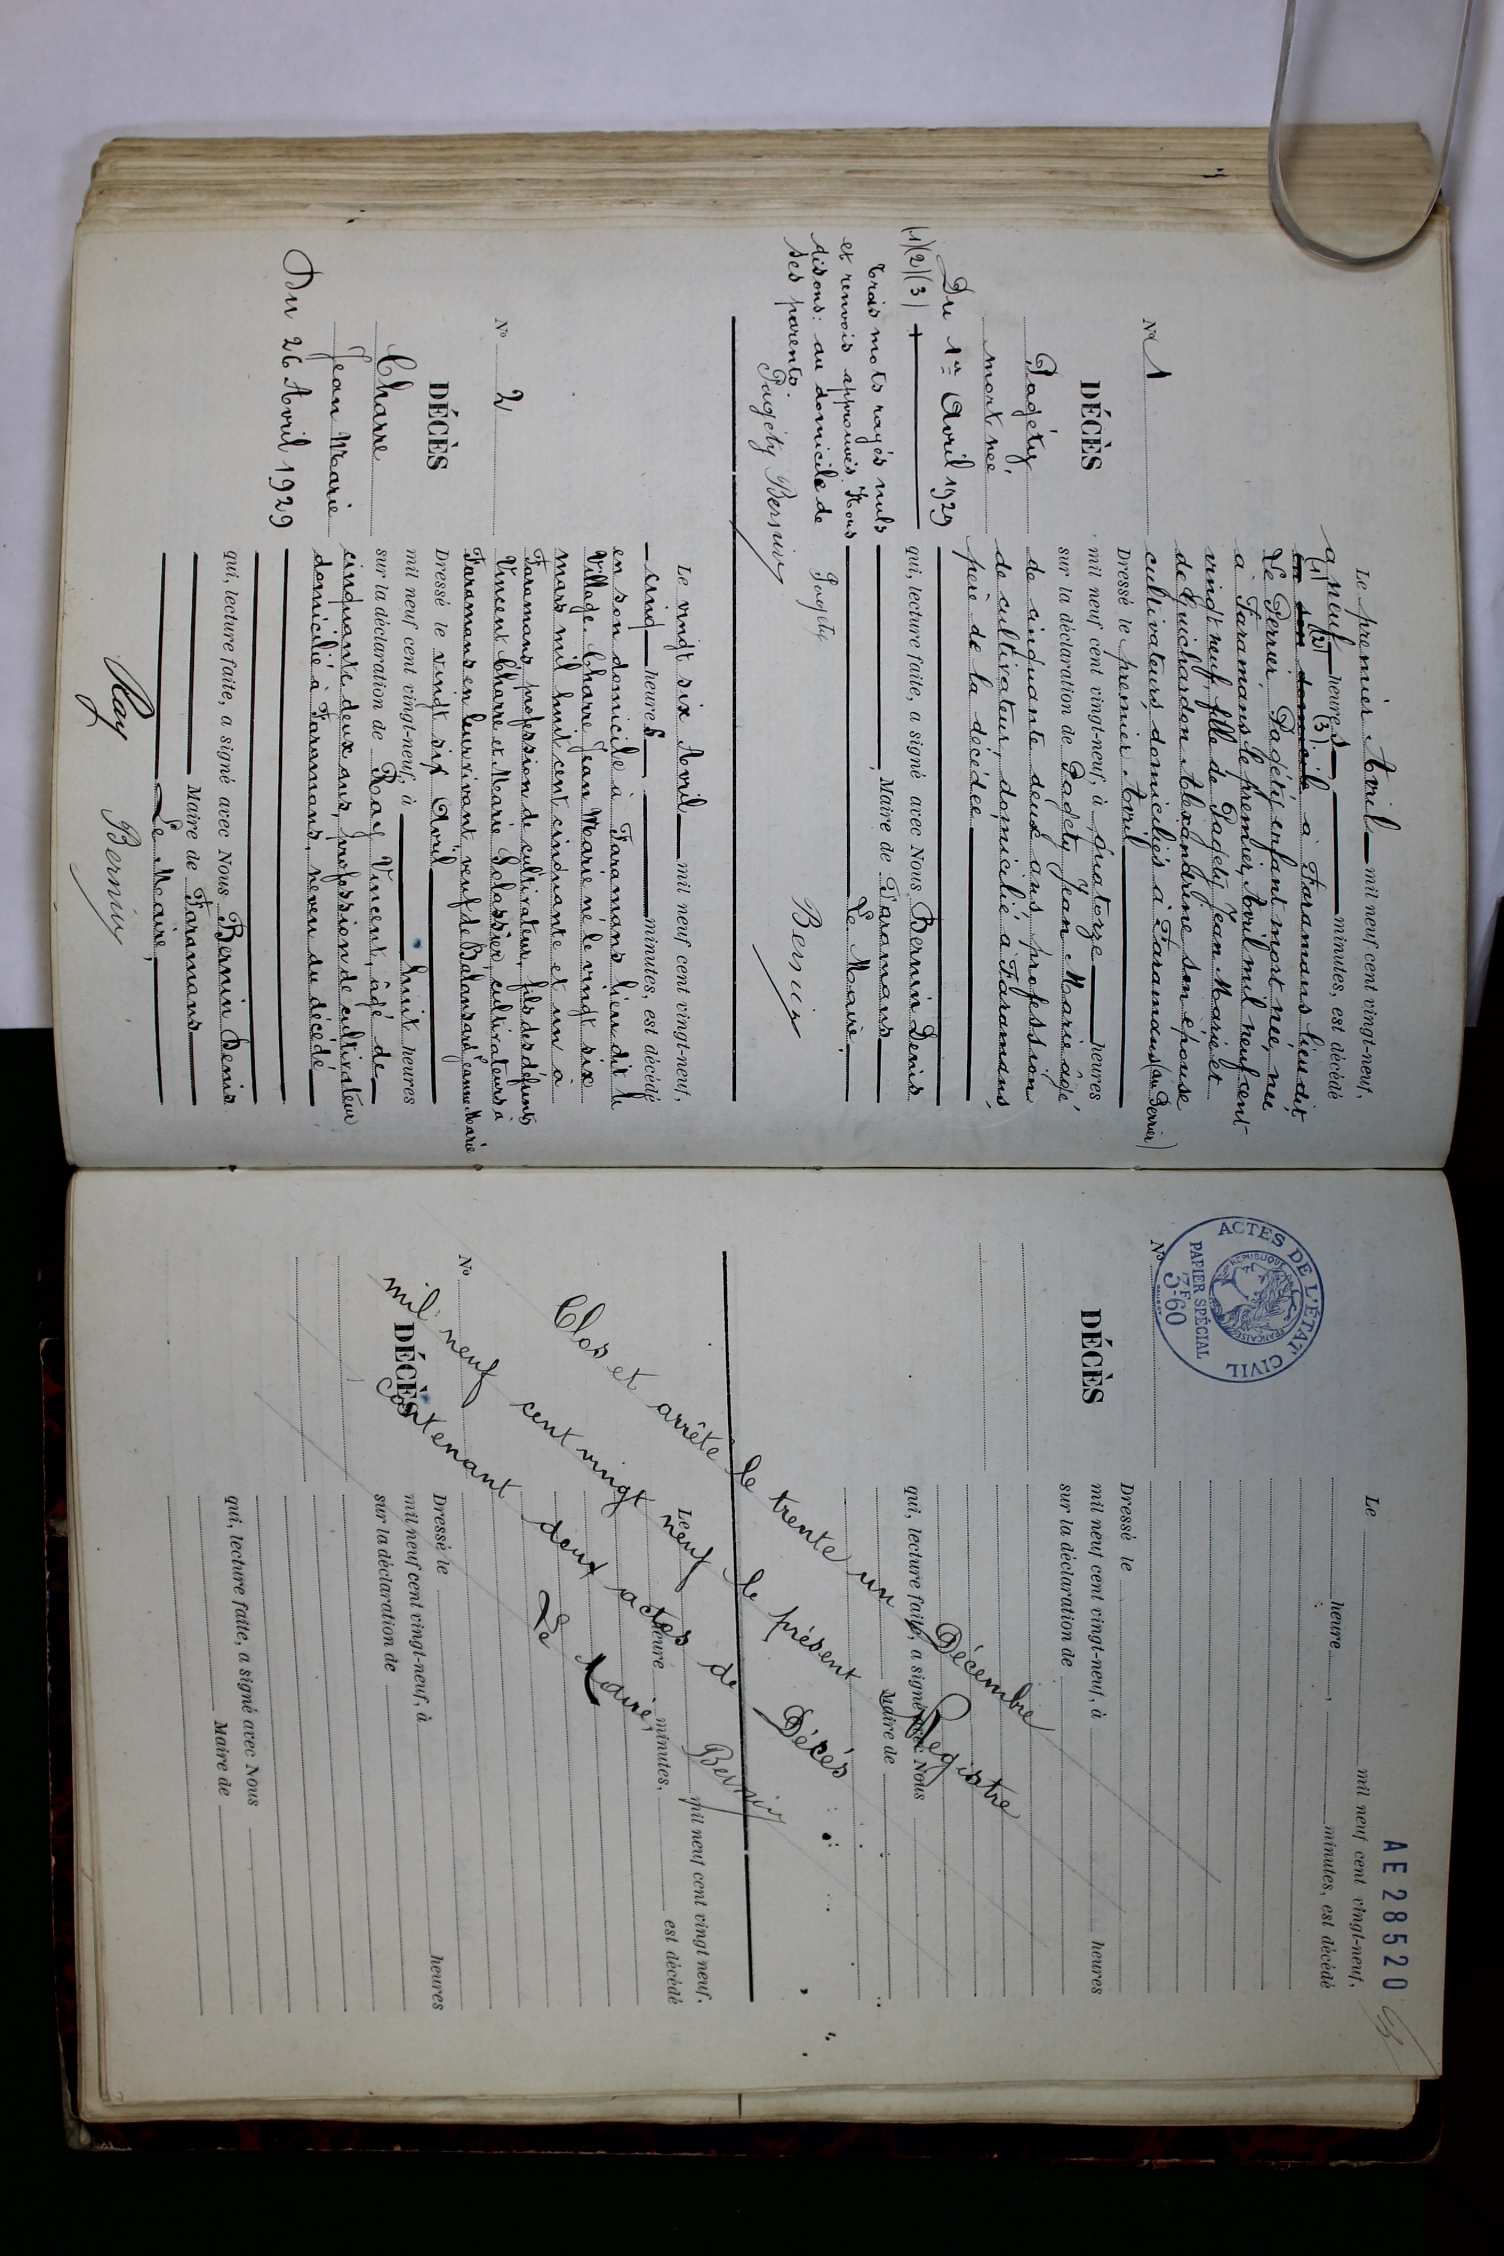 N° 1
DÉCÈS
Pagéty
mort née,
Du 1er Avril 1929
(1)(2)(3) +
trois mots rayés nuls
et renvois approuvés. Nous
disons: au domicile de
ses parents.
Pagéty Bernin
Le premier Avril mil neuf cent vingt-neuf,
à neuf heures minutes, est décédé
(1) (2) (3)
en son domicile à Faramans lieu dit
Le Perrier, Pagéty enfant mort née, née
à Faramans le premier Avril mil neuf cent
vingt neuf, fille de Pagéty Jean Marie et
de Guichardon Alexandrine, son épouse
cultivateurs domiciliés à Faramans (au Perrier)
Dressé le premier Avril
mil neuf cent vingt-neuf, à quatorze heures
sur la déclaration de Pagéty Jean Marie âgé
de cinquante deux ans, profession
de cultivateur, domicilié à Faramans,
père de la décédée
qui, lecture faite, a signé avec Nous Bernin Denis
Maire de Faramans
Le Maire,
Pagéty
Bernin
N° 2
DÉCÈS
Charre
Jean Marie
Du 26 Avril 1929
Le vingt six Avril mil neuf cent vingt-neuf,
cinq heures minutes, est décédé
en son domicile à Faramans lieu dit le
Village. Charre Jean Marie né le vingt six
mars mil huit cent cinquante et un à
Faramans, profession de cultivateur, fils des défunts
Vincent Charre et Marie cultivateurs à
Faramans en leur vivant veuf de Jeanne Marie
Dressé le vingt six Avril
mil neuf cent vingt-neuf, à huit heures
sur la déclaration de Ray Vincent, âgé de
cinquante deux ans, profession de cultivateur
domicilié à Faramans, neveu du décédé
qui, lecture faite, a signé avec Nous Bernin Denis
Maire de Faramans
Le Maire,
Ray Bernin
AE 28520
ACTES DE L'ÉTAT CIVIL
RÉPUBLIQUE FRANÇAISE
PAPIER SPÉCIAL
3F60
N°
DÉCÈS
Le mil neuf cent vingt-neuf,
heure , minutes, est décédé
Dressé le
mil neuf cent vingt-neuf, à heures
sur la déclaration de
qui, lecture faite, a signé avec Nous
Maire de
Clos et arrête le trente un Décembre
mil neuf cent vingt neuf le présent Registre
contenant deux actes de Décès
Le Maire,
Bernin
N°
DÉCÈS
Le mil neuf cent vingt neuf,
heure minutes, est décédé
Dressé le
mil neuf cent vingt-neuf, à heures
sur la déclaration de
qui, lecture faite, a signé avec Nous
Maire de